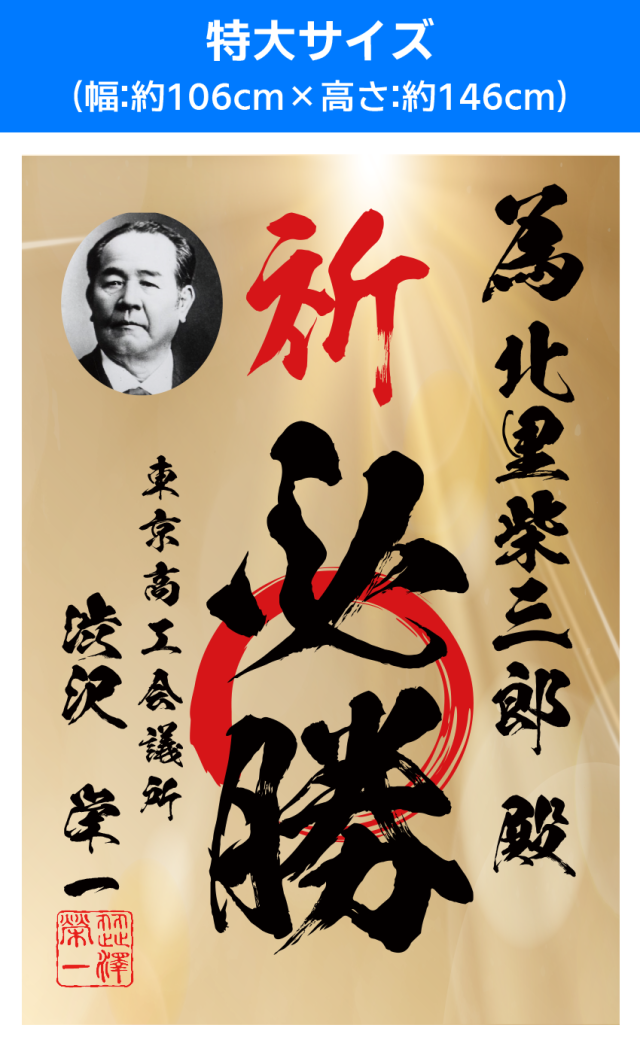 特大サイズ
(幅:約106cm×高さ:約146cm)
為 北里柴三郎 殿
祈
必勝
東京商工会議所
渋沢 栄一
澁澤
榮一